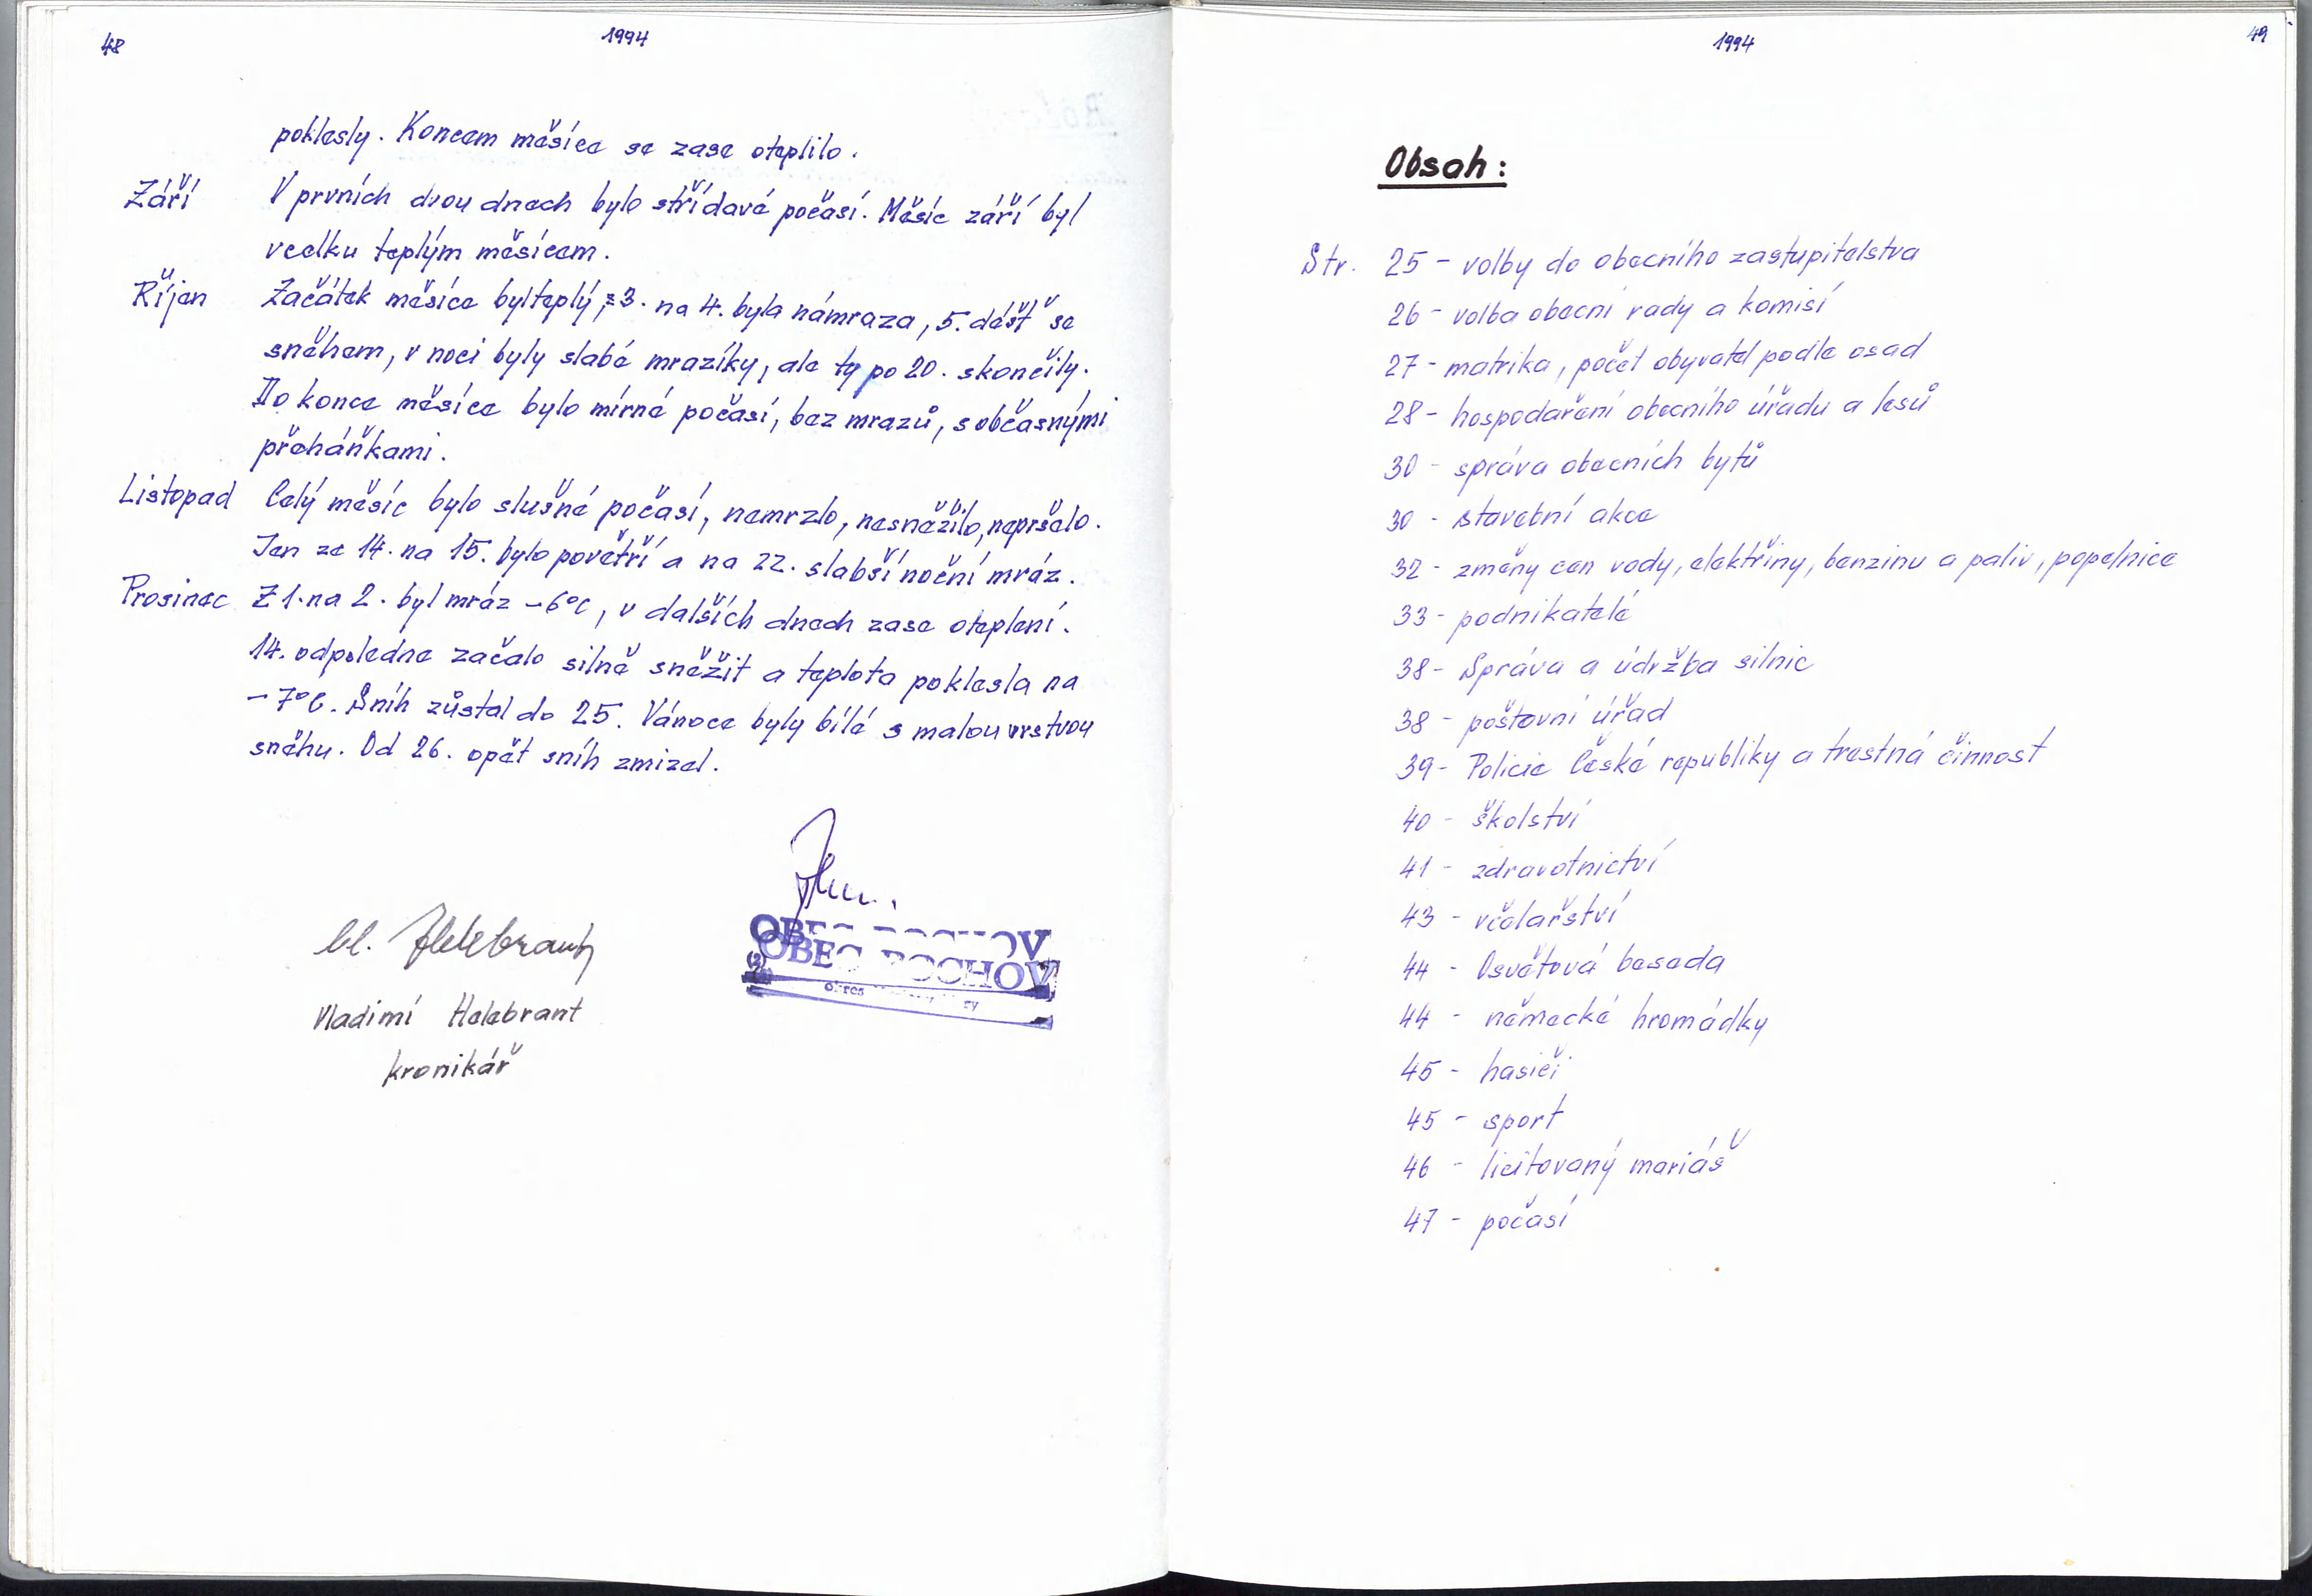 48
1994
poklesly. Koncem měsíce se zase oteplilo.
Září V prvních dvou dnech bylo střídavé počasí. Měsíc září byl
vcelku teplým měsícem.
Říjen Začátek měsíce byl teplý, z 3. na 4. byla námraza, 5. déšť se
sněhem, v noci byly slabé mrazíky, ale ty po 20. skončily.
Do konce měsíce bylo mírné počasí, bez mrazů, s občasnými
přeháňkami.
Listopad Celý měsíc bylo slušné počasí, nemrzlo, nesněžilo, nepršelo.
Jen ze 14. na 15. bylo povětří a na 22. slabší noční mráz.
Prosinec Z 1. na 2. byl mráz -6°C, v dalších dnech zase oteplení.
14. odpoledne začalo silně sněžit a teplota poklesla na
-7°C. Sníh zůstal do 25. Vánoce byly bílé s malou vrstvou
sněhu. Od 26. opět sníh zmizel.
OBEC BOCHOV
OBEC BOCHOV
okres
Vl. Helebrant
Vladimí Helebrant
kronikář
1994
49
Obsah:
Str. 25 - volby do obecního zastupitelstva
26 - volba obecní rady a komisí
27 - matrika, počet obyvatel podle osad
28 - hospodaření obecního úřadu a lesů
30 - správa obecních bytů
30 - stavební akce
32 - změny cen vody, elektřiny, benzinu a paliv, popelnice
33 - podnikatelé
38 - Správa a údržba silnic
38 - poštovní úřad
39 - Policie České republiky a trestná činnost
40 - školství
41 - zdravotnictví
43 - včelařství
44 - Osvětová beseda
44 - německé hromádky
45 - hasiči
45 - sport
46 - licitovaný mariáš
47 - počasí